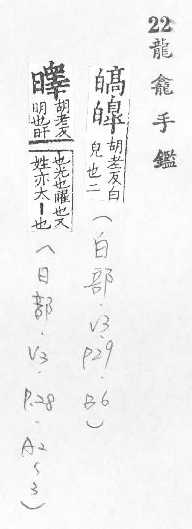 22龍龕手鑑
皜皥胡老反白
皃也二
(白部.V3.P29.B6)
暤胡老反
明也旰
也光也曜也又
姓亦大丨也
(日部.V3.P.28.A2~3)